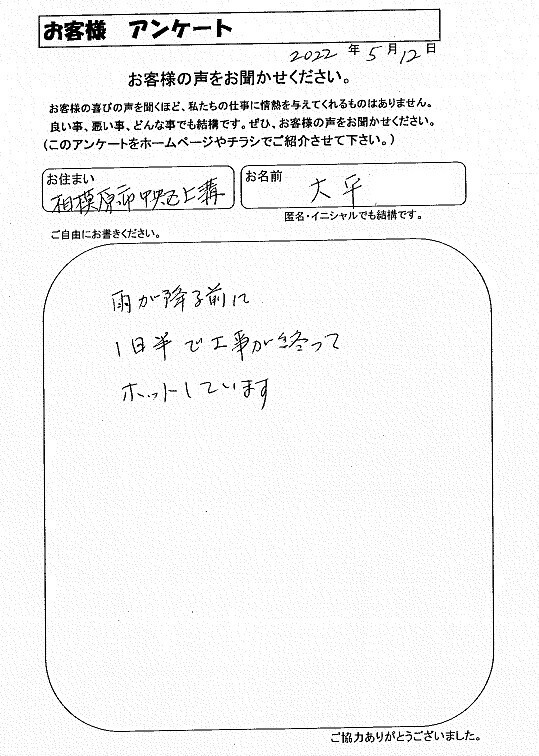 お客様 アンケート
2022 年 5 月 12 日
お客様の声をお聞かせください。
お客様の喜びの声を聞くほど、私たちの仕事に情熱を与えてくれるものはありません。
良い事、悪い事、どんな事でも結構です。ぜひ、お客様の声をお聞かせください。
(このアンケートをホームページやチラシでご紹介させて下さい。)
お住まい
相模原市中央区上溝
お名前
大平
匿名・イニシャルでも結構です。
ご自由にお書きください。
雨が降る前に
1日半で工事が終って
ホットしています
ご協力ありがとうございました。